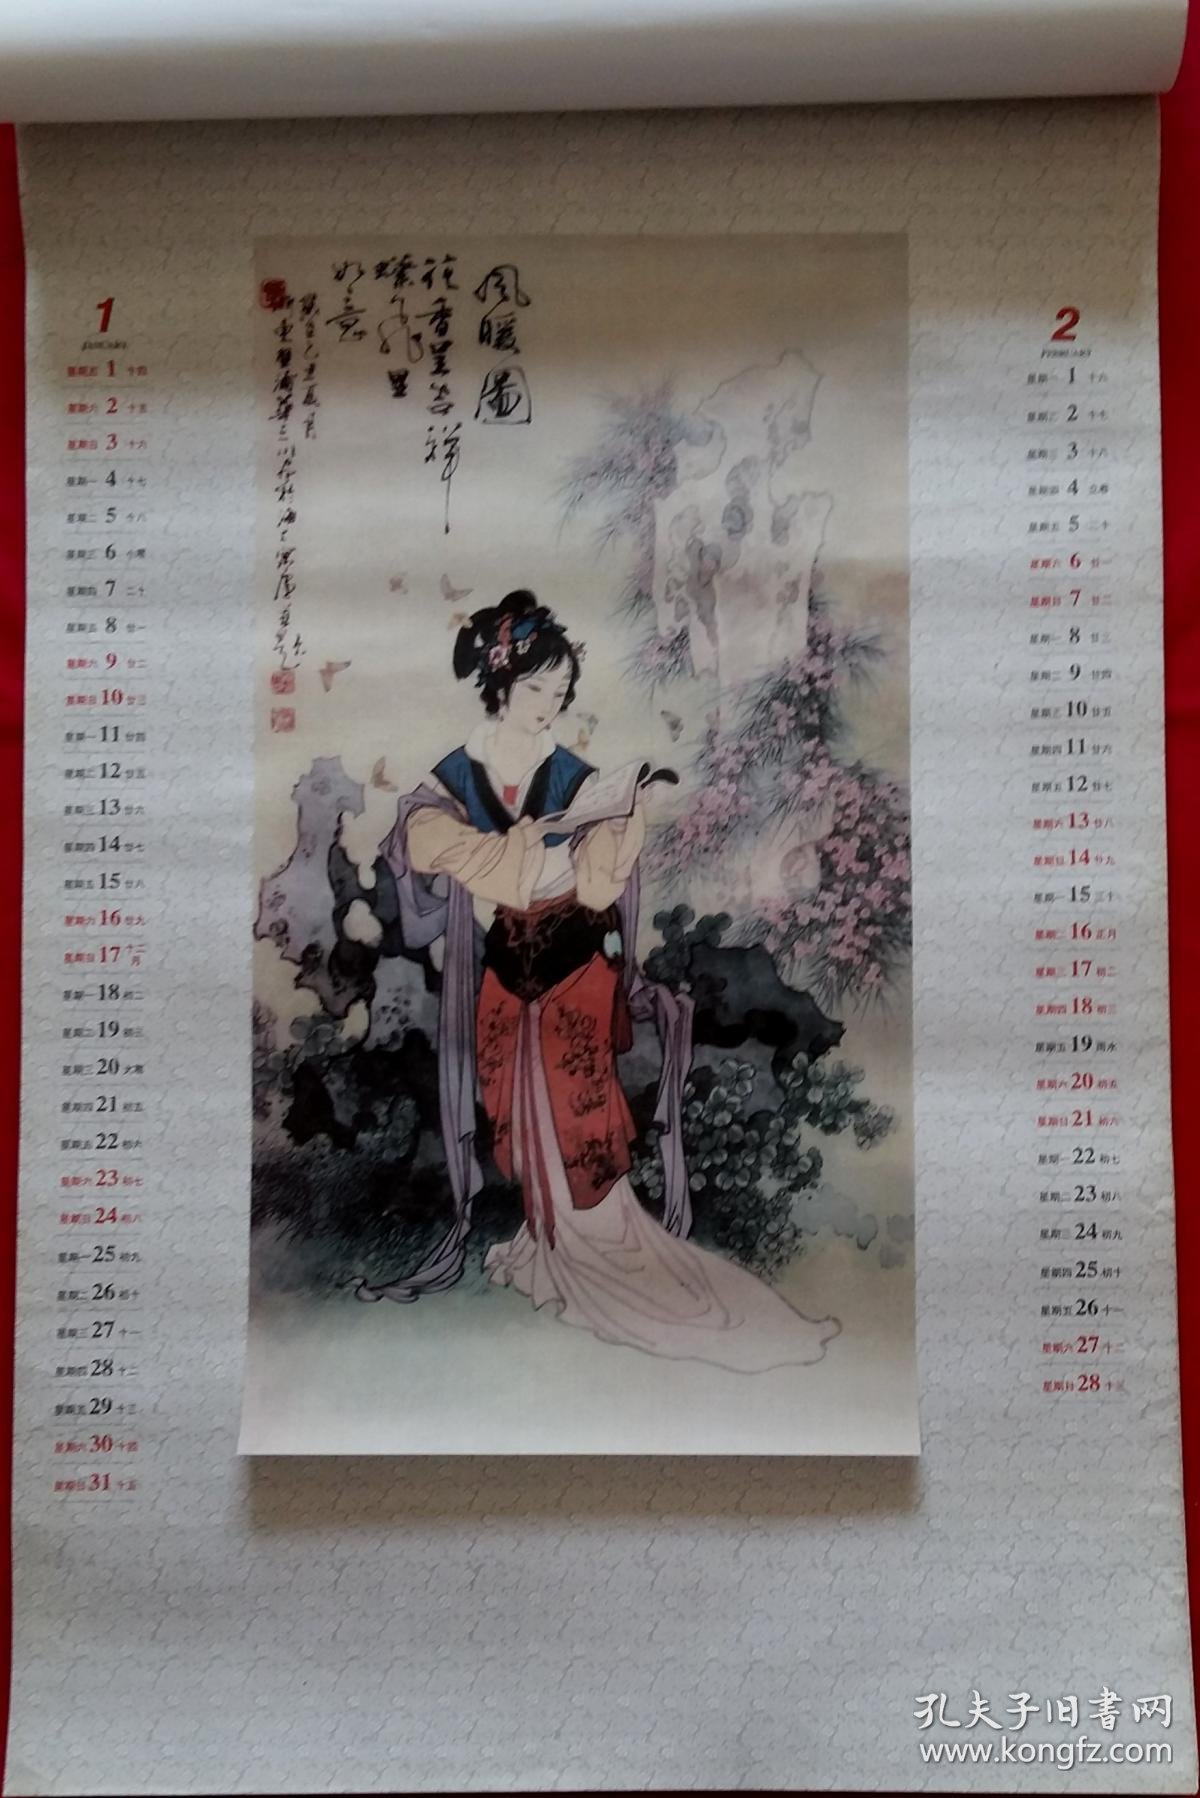 风暖图
花香呈吉祥
蝶飞里
如意
1
JANUARY
星期五 1 十四
星期六 2 十五
星期日 3 十六
星期一 4 十七
星期二 5 十八
星期三 6 小寒
星期四 7 二十
星期五 8 廿一
星期六 9 廿二
星期日 10 廿三
星期一 11 廿四
星期二 12 廿五
星期三 13 廿六
星期四 14 廿七
星期五 15 廿八
星期六 16 廿九
星期日 17 十二月
星期一 18 初二
星期二 19 初三
星期三 20 大寒
星期四 21 初五
星期五 22 初六
星期六 23 初七
星期日 24 初八
星期一 25 初九
星期二 26 初十
星期三 27 十一
星期四 28 十二
星期五 29 十三
星期六 30 十四
星期日 31 十五
2
FEBRUARY
星期一 1 十六
星期二 2 十七
星期三 3 十八
星期四 4 立春
星期五 5 二十
星期六 6 廿一
星期日 7 廿二
星期一 8 廿三
星期二 9 廿四
星期三 10 廿五
星期四 11 廿六
星期五 12 廿七
星期六 13 廿八
星期日 14 廿九
星期一 15 三十
星期二 16 正月
星期三 17 初二
星期四 18 初三
星期五 19 雨水
星期六 20 初五
星期日 21 初六
星期一 22 初七
星期二 23 初八
星期三 24 初九
星期四 25 初十
星期五 26 十一
星期六 27 十二
星期日 28 十三
孔夫子旧书网
www.kongfz.com